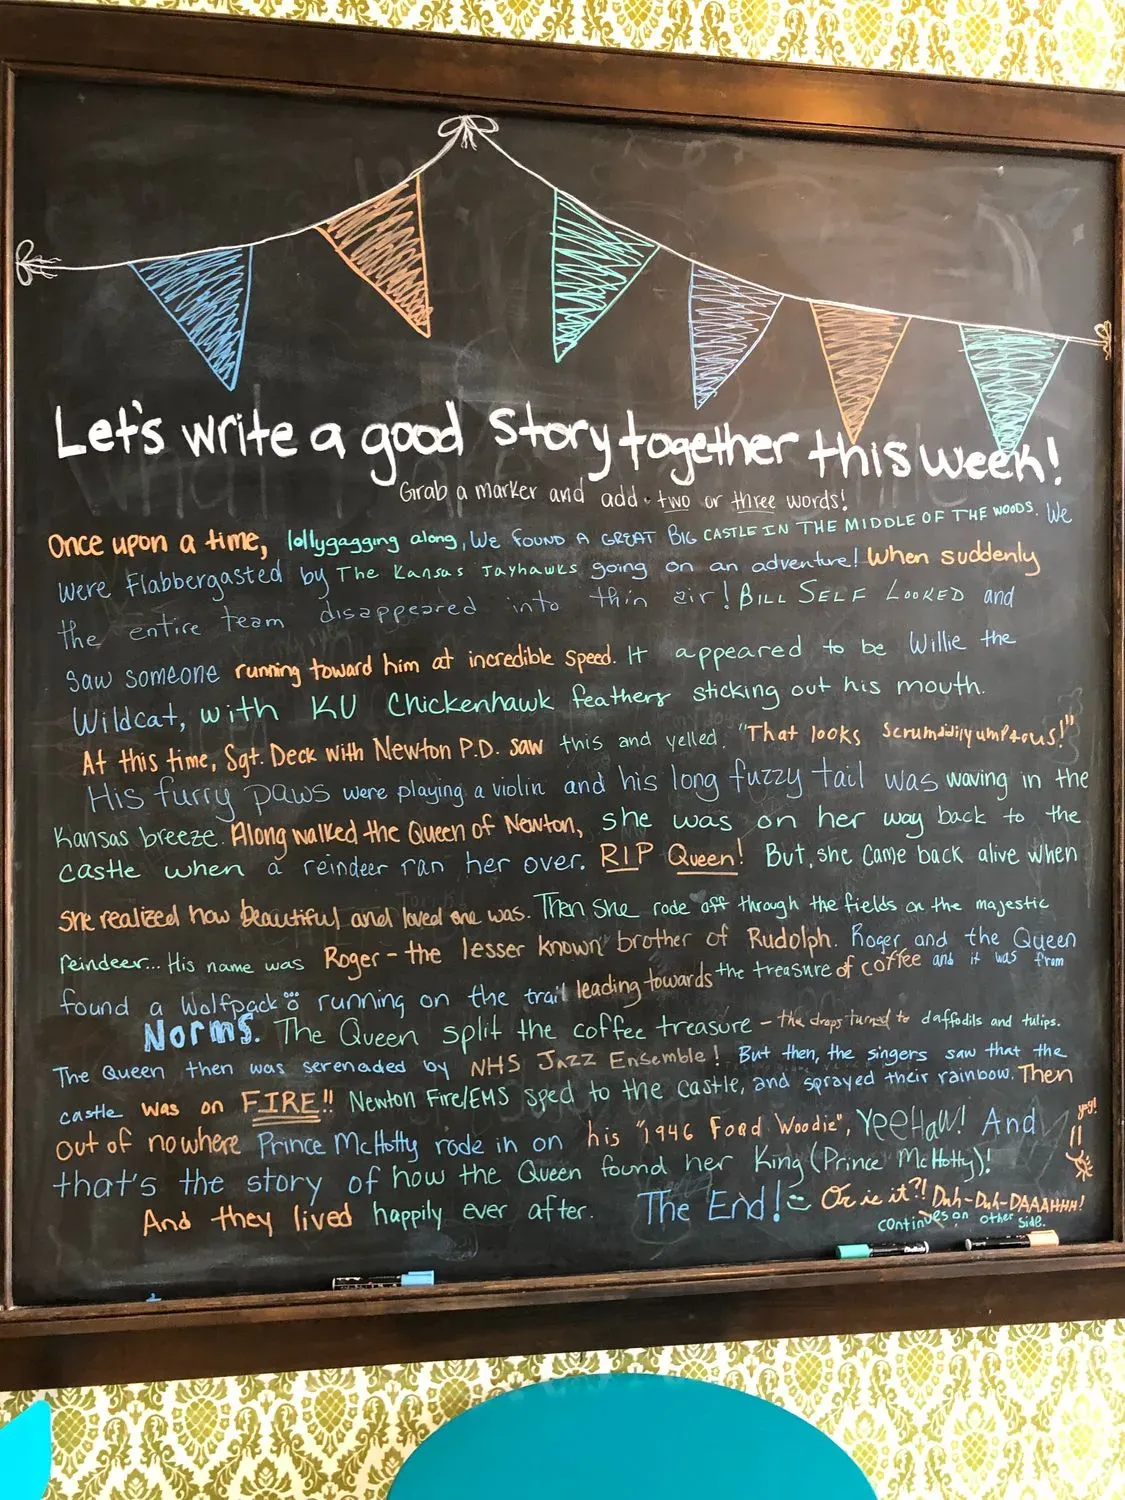 Let's write a good story together this week!
Grab a marker and add two or three words!
Once upon a time, lollygagging along, We found A GREAT BIG CASTLE IN THE MIDDLE OF THE WOODS. We
were Flabbergasted by The Kansas Jayhawks going on an adventure! When suddenly
the entire team disappeared into thin air! BILL SELF LOOKED and
saw someone running toward him at incredible speed. It appeared to be Willie the
Wildcat, with KU Chickenhawk feathers sticking out his mouth.
At this time, Sgt. Deck with Newton P.D. saw this and yelled. "That looks scrumdiliyumptous!"
His furry paws were playing a violin and his long fuzzy tail was waving in the
Kansas breeze. Along walked the Queen of Newton, she was on her way back to the
castle when a reindeer ran her over. RIP Queen! But, she came back alive when
she realized how beautiful and loved she was. Then she rode off through the fields on the majestic
reindeer... His name was Roger - the lesser known brother of Rudolph. Roger and the Queen
found a Wolfpack running on the trail leading towards the treasure of coffee and it was from
Norms. The Queen split the coffee treasure - the drops turned to daffodils and tulips.
The Queen then was serenaded by NHS Jazz Ensemble! But then, the singers saw that the
castle was on FIRE!! Newton Fire/EMS sped to the castle, and sprayed their rainbow. Then
out of nowhere Prince McHotty rode in on his "1946 Ford Woodie", YeeHaw! And
that's the story of how the Queen found her King (Prince McHotty)!
And they lived happily ever after. The End! Or is it?! Duh-Duh-DAAAHHH!
continues on other side.